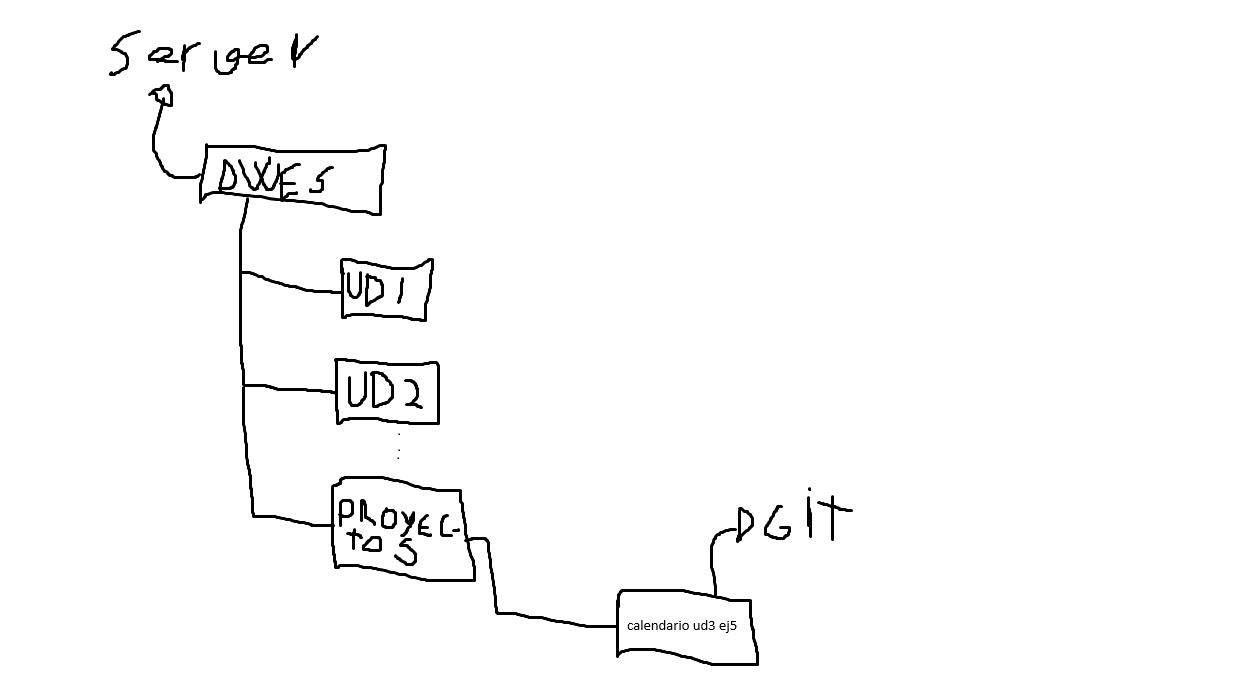 Server
DWES
UD1
UD2
PROYEC-
tos
Git
calendario ud3 ej5